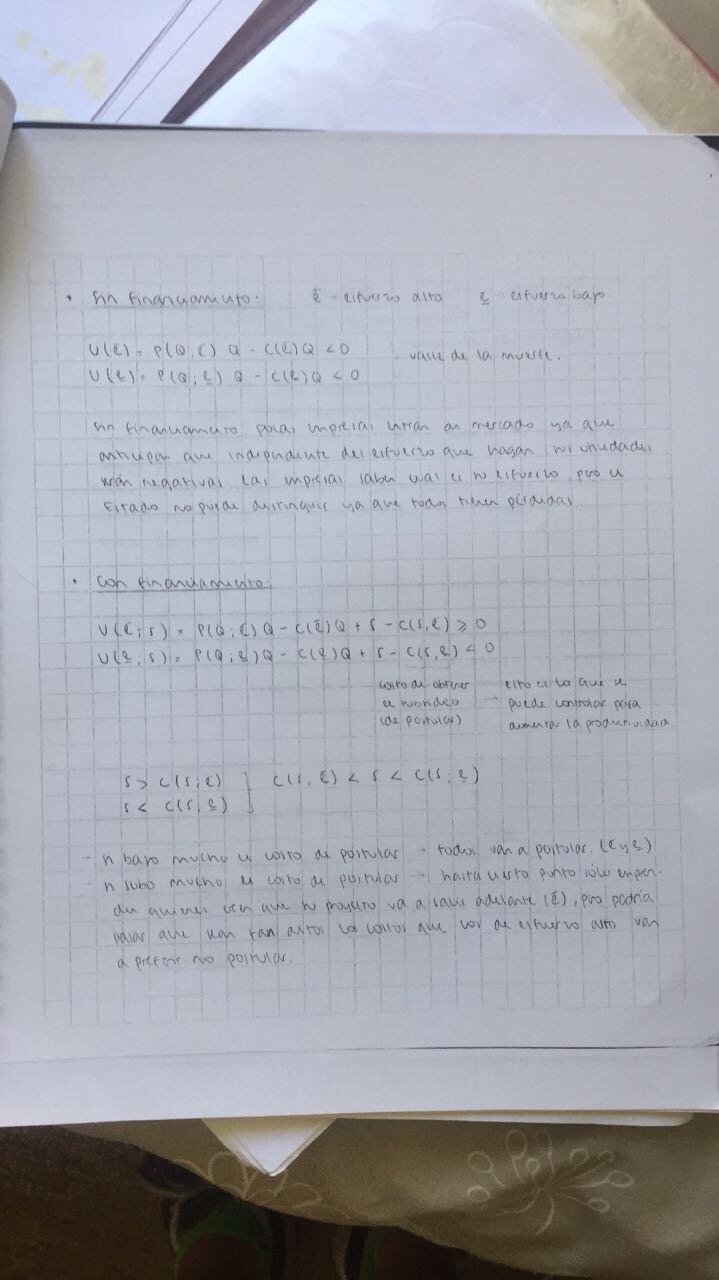 • Sin financiamiento: ē - esfuerzo alto e̲ esfuerzo bajo
U(ē) = P(Q, ē) Q - C(ē)Q < 0 - valle de la muerte.
U(e̲) = P(Q; e̲) Q - C(e̲)Q < 0
Sin financiamiento pocas empresas entran al mercado ya que
anticipan que independiente del esfuerzo que hagan sus utilidades
serán negativas. Las empresas saben cual es su esfuerzo, pero el
Estado no puede distinguir ya que todos tienen pérdidas.
• Con financiamiento:
U(ē; s) = P(Q; ē)Q - C(ē)Q + s - C(s, ē) ≥ 0
U(e̲; s) = P(Q; e̲)Q - C(e̲)Q + s - C(s, e̲) < 0
costo de obtener → esto es lo que se
el subsidio puede controlar para
(de postular) aumentar la productividad
s > C(s; ē) } C(s, ē) < s < C(s; e̲)
s < C(s, e̲)
- si bajo mucho el costo de postular → todos van a postular. (ē y e̲)
- si subo mucho el costo de postular → hasta cierto punto sólo empren-
den quienes creen que su proyecto va a salir adelante (ē), pero podría
pasar que sean tan altos los costos que los de esfuerzo alto van
a preferir no postular.